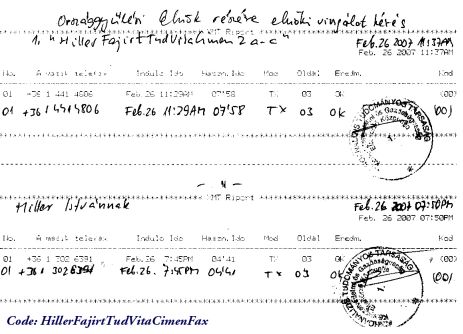 Országgyűlési Elnök részére elnöki vizsgálat kérés
1. "HillerFajirtTudVitaCimen 2 a-c" Feb. 26 2007 11:37AM
XMT Riport Feb. 26 2007 11:37AM
No. A masik telefax Indulo Ido Haszn. Ido Mod Oldal Eredm. Kod
01 +36 1 441 4806 Feb.26 11:29AM 07'58 TX 03 OK (00)
01 +36 1 4414806 Feb.26 11:29AM 07'58 TX 03 OK (00)
TUDOMÁNYOS TÁRSASÁG
- " -
XMT Riport
Hiller Istvánnak Feb.26 2007 07:50PM
Feb. 26 2007 07:50PM
No. A masik telefax Indulo Ido Haszn. Ido Mod Oldal Eredm. Kod
01 +36 1 302 6391 Feb.26 7:45PM 04'41 TX 03 OK (00)
01 +36 1 302 6391 Feb.26. 7:45PM 04'41 TX 03 OK (00)
TUDOMÁNYOS TÁRSASÁG
Code: HillerFajirtTudVitaCimenFax